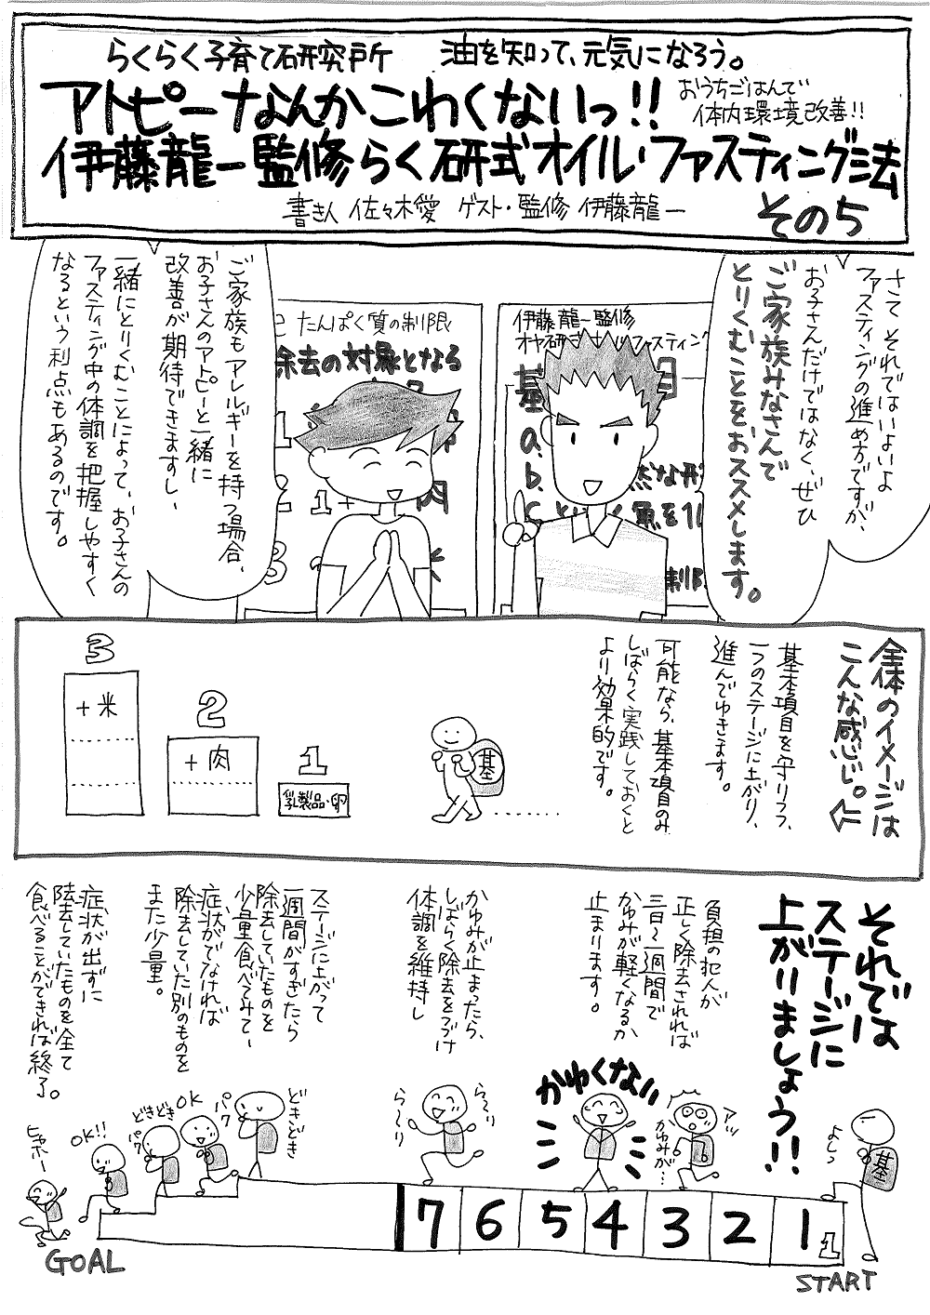 らくらく子育て研究所　油を知って、元気になろう。
アトピーなんかこわくないっ!!
おうちごはんで
体内環境改善!!
伊藤龍一監修らく研式オイル・ファスティング法
書き人 佐々木愛 ゲスト・監修 伊藤龍一
その5
さて それではいよいよ
ファスティングの進め方ですが、
お子さんだけではなく、ぜひ
ご家族みなさんで
とりくむことをおススメします。
伊藤龍一監修
ファスティング
基
目
a.
b.
c.
たんぱく質の制限
除去の対象となる
1
2 1+
肉
3
ご家族もアレルギーを持つ場合、
お子さんのアトピーと一緒に
改善が期待できますし、
一緒にとりくむことによって、お子さんの
ファスティング中の体調を把握しやすく
なるという利点もあるのです。
全体のイメージは
こんな感じ。
←
基本項目を守りつつ、
一つのステージに上がり、
進んでゆきます。
可能なら、基本項目のみ
しばらく実践しておくと
より効果的です。
基
1
乳製品・卵
2
+肉
3
+米
それでは
ステージに
上がりましょう!!
負担の犯人が
正しく除去されれば
三日〜一週間で
かゆみが軽くなるか
止まります。
かゆみが止まったら、
しばらく除去をつづけ
体調を維持し
ステージに上がって
一週間がすぎたら
除去していたものを
少量食べてみて、
症状がでなければ
除去していた別のものを
また少量。
症状が出ずに
除去していたものを全て
食べることができれば終了。
よしっ
基
アッ
かゆみが…
かゆくないい
ら〜り
ら〜り
どきどき
パク
OK
どきどき
パク
OK!!
ヒャホー
7 6 5 4 3 2 1
1
GOAL
START